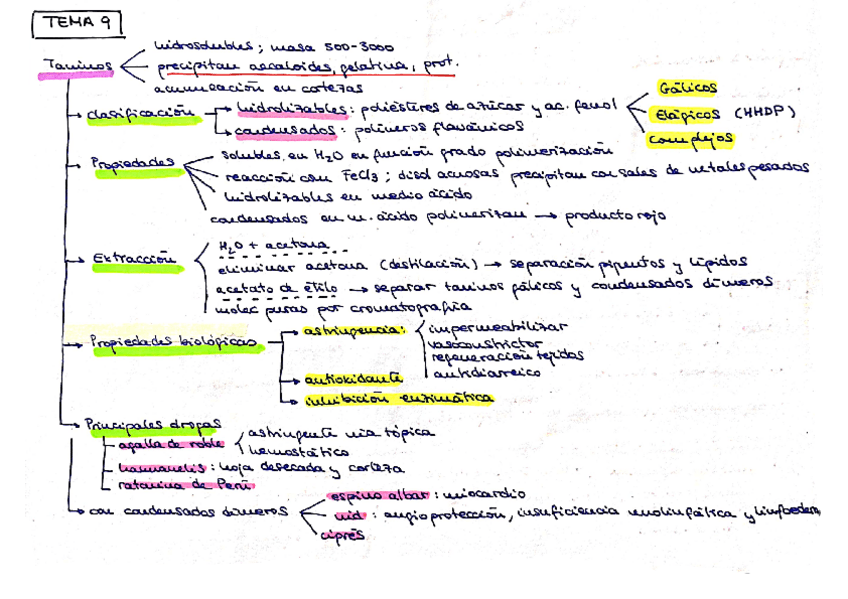 TEMA 9
Taninos
hidrosolubles; masa 500-3000
precipitan alcaloides, gelatina, prot.
acumulación en cortezas
clasificación
hidrolizables: poliésteres de azúcar y ac. fenol
Gálicos
Elágicos (HHDP)
Complejos
condensados: polímeros flavánicos
Propiedades
solubles en H2O en función grado polimerización
reacción con FeCl3; disol acuosas precipitan con sales de metales pesados
hidrolizables en medio ácido
condensados en m. ácido polimerizan → producto rojo
Extracción
H2O + acetona
eliminar acetona (destilación) → separación pigmentos y lípidos
acetato de etilo → separar taninos gálicos y condensados dímeros
molec puras por cromatografía
Propiedades biológicas
astringencia:
impermeabilizar
vasoconstrictor
regeneración tejidos
antidiarreico
antioxidante
inhibición enzimática
Principales drogas
agalla de roble
astringente vía tópica
hemostático
hamamelis: hoja desecada y corteza
ratania de Perú
con condensados dímeros
espino albar: miocardio
vid: angioprotección, insuficiencia
ciprés